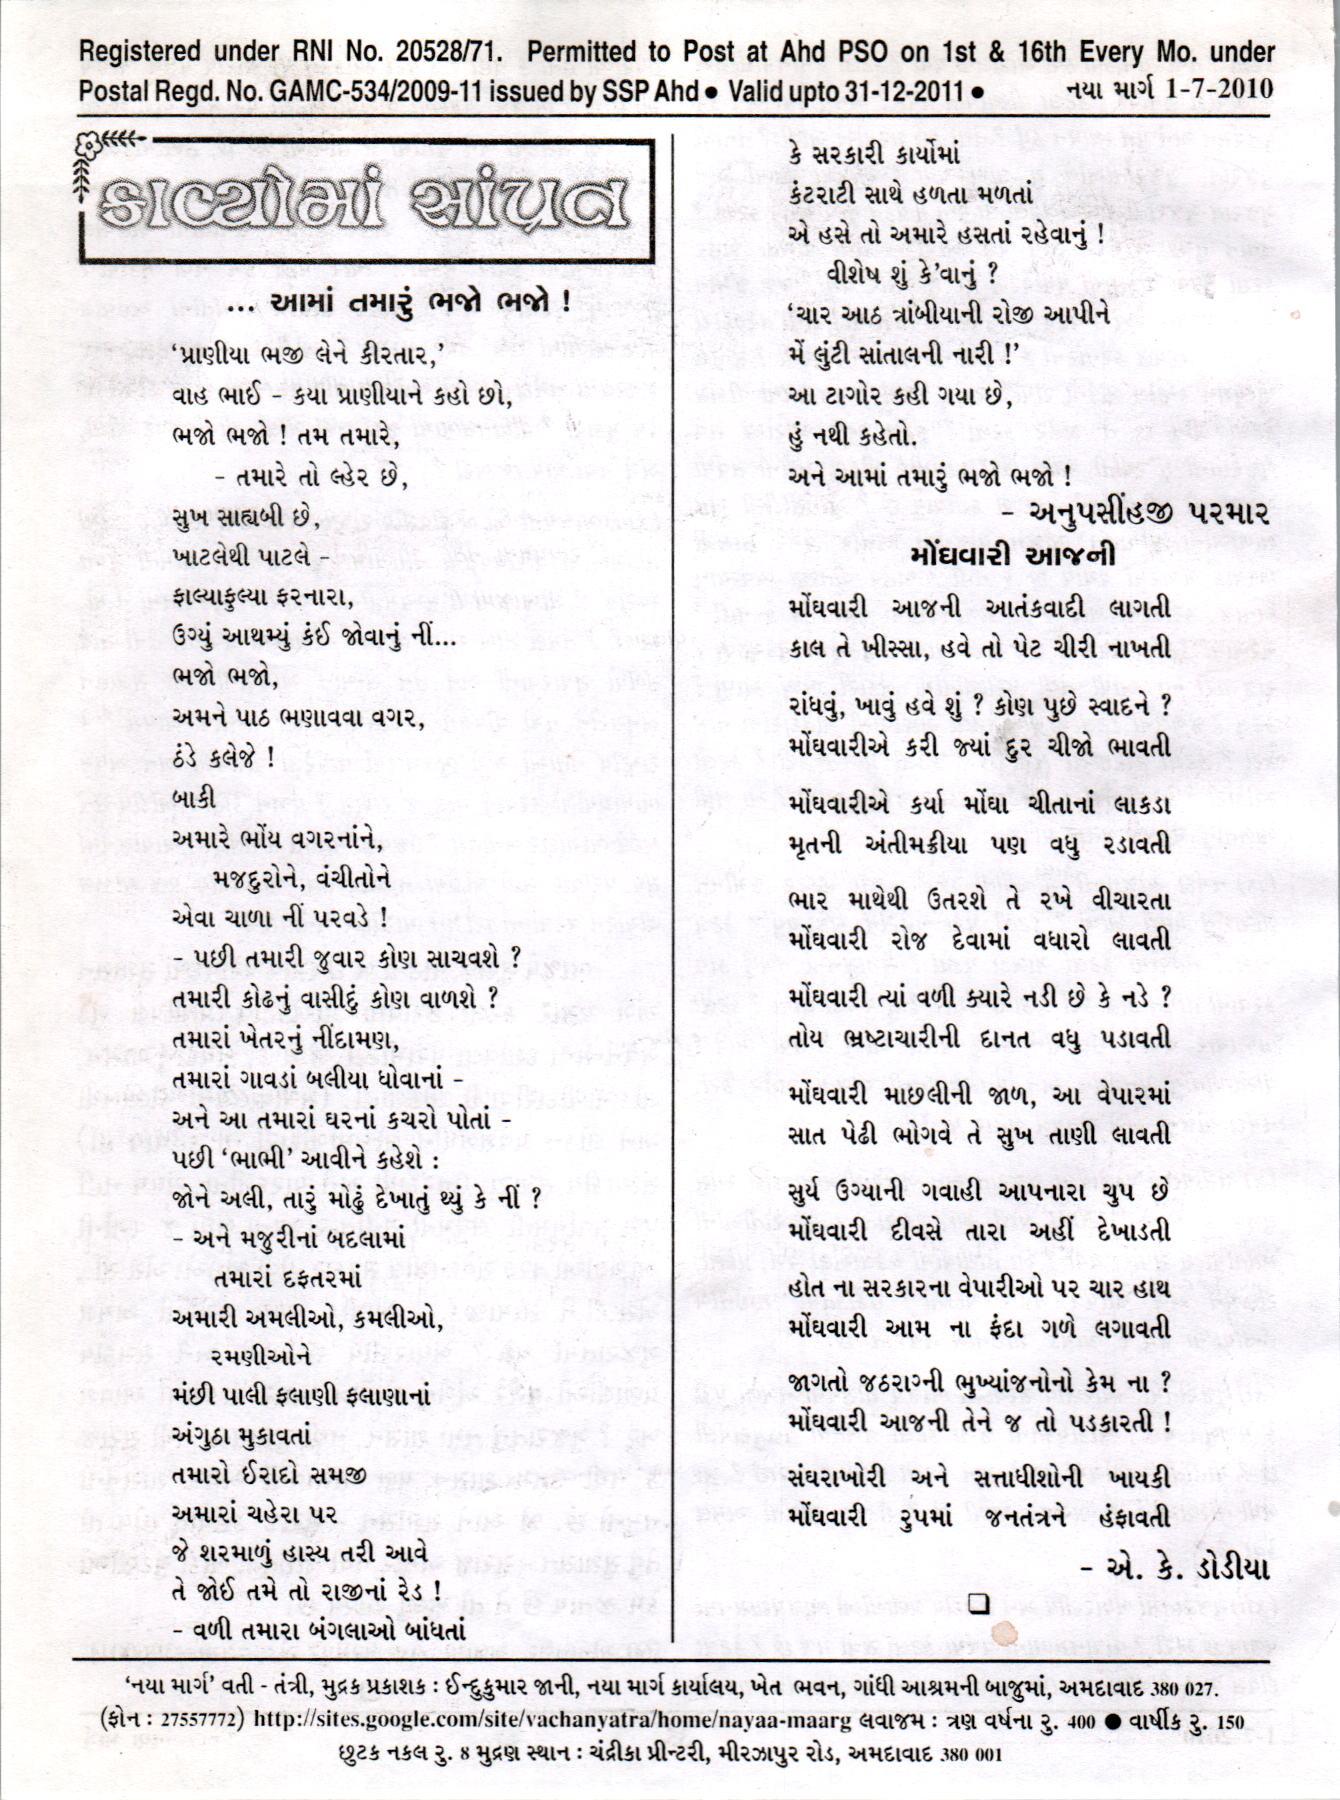 Registered under RNI No. 20528/71. Permitted to Post at Ahd PSO on 1st & 16th Every Mo. under
Postal Regd. No. GAMC-534/2009-11 issued by SSP Ahd ● Valid upto 31-12-2011 ● નયા માર્ગ 1-7-2010
કાવ્યોમાં સાંપ્રત
... આમાં તમારું ભજો ભજો !
‘પ્રાણીયા ભજી લેને કીરતાર,’
વાહ ભાઈ - કયા પ્રાણીયાને કહો છો,
ભજો ભજો ! તમ તમારે,
- તમારે તો લ્હેર છે,
સુખ સાહ્યબી છે,
ખાટલેથી પાટલે -
ફાલ્યાફુલ્યા ફરનારા,
ઉગ્યું આથમ્યું કંઈ જોવાનું નીં...
ભજો ભજો,
અમને પાઠ ભણાવવા વગર,
ઠંડે કલેજે !
બાકી
અમારે ભોંય વગરનાંને,
મજદુરોને, વંચીતોને
એવા ચાળા નીં પરવડે !
- પછી તમારી જુવાર કોણ સાચવશે ?
તમારી કોઢનું વાસીદું કોણ વાળશે ?
તમારાં ખેતરનું નીંદામણ,
તમારાં ગાવડાં બલીયા ધોવાનાં -
અને આ તમારાં ઘરનાં કચરો પોતાં -
પછી ‘ભાભી’ આવીને કહેશે :
જોને અલી, તારું મોઢું દેખાતું થ્યું કે નીં ?
- અને મજુરીનાં બદલામાં
તમારાં દફતરમાં
અમારી અમલીઓ, કમલીઓ,
રમણીઓને
મંછી પાલી ફલાણી ફલાણાનાં
અંગુઠા મુકાવતાં
તમારો ઈરાદો સમજી
અમારાં ચહેરા પર
જે શરમાળું હાસ્ય તરી આવે
તે જોઈ તમે તો રાજીનાં રેડ !
- વળી તમારા બંગલાઓ બાંધતાં
કે સરકારી કાર્યોમાં
કંટરાટી સાથે હળતા મળતાં
એ હસે તો અમારે હસતાં રહેવાનું !
વીશેષ શું કે’વાનું ?
‘ચાર આઠ ત્રાંબીયાની રોજી આપીને
મેં લુંટી સાંતાલની નારી !’
આ ટાગોર કહી ગયા છે,
હું નથી કહેતો.
અને આમાં તમારું ભજો ભજો !
- અનુપસીંહજી પરમાર
મોંઘવારી આજની
મોંઘવારી આજની આતંકવાદી લાગતી
કાલ તે ખીસ્સા, હવે તો પેટ ચીરી નાખતી
રાંધવું, ખાવું હવે શું ? કોણ પુછે સ્વાદને ?
મોંઘવારીએ કરી જ્યાં દુર ચીજો ભાવતી
મોંઘવારીએ કર્યા મોંઘા ચીતાનાં લાકડા
મૃતની અંતીમક્રીયા પણ વધુ રડાવતી
ભાર માથેથી ઉતરશે તે રખે વીચારતા
મોંઘવારી રોજ દેવામાં વધારો લાવતી
મોંઘવારી ત્યાં વળી ક્યારે નડી છે કે નડે ?
તોય ભ્રષ્ટાચારીની દાનત વધુ પડાવતી
મોંઘવારી માછલીની જાળ, આ વેપારમાં
સાત પેઢી ભોગવે તે સુખ તાણી લાવતી
સુર્ય ઉગ્યાની ગવાહી આપનારા ચુપ છે
મોંઘવારી દીવસે તારા અહીં દેખાડતી
હોત ના સરકારના વેપારીઓ પર ચાર હાથ
મોંઘવારી આમ ના ફંદા ગળે લગાવતી
જાગતો જઠરાગ્ની ભુખ્યાંજનોનો કેમ ના ?
મોંઘવારી આજની તેને જ તો પડકારતી !
સંઘરાખોરી અને સત્તાધીશોની ખાયકી
મોંઘવારી રુપમાં જનતંત્રને હંફાવતી
- એ. કે. ડોડીયા
‘નયા માર્ગ’ વતી - તંત્રી, મુદ્રક પ્રકાશક : ઈન્દુકુમાર જાની, નયા માર્ગ કાર્યાલય, ખેત ભવન, ગાંધી આશ્રમની બાજુમાં, અમદાવાદ 380 027.
(ફોન : 27557772) http://sites.google.com/site/vachanyatra/home/nayaa-maarg લવાજમ : ત્રણ વર્ષના રુ. 400 ● વાર્ષીક રુ. 150
છુટક નકલ રુ. 8 મુદ્રણ સ્થાન : ચંદ્રીકા પ્રીન્ટરી, મીરઝાપુર રોડ, અમદાવાદ 380 001